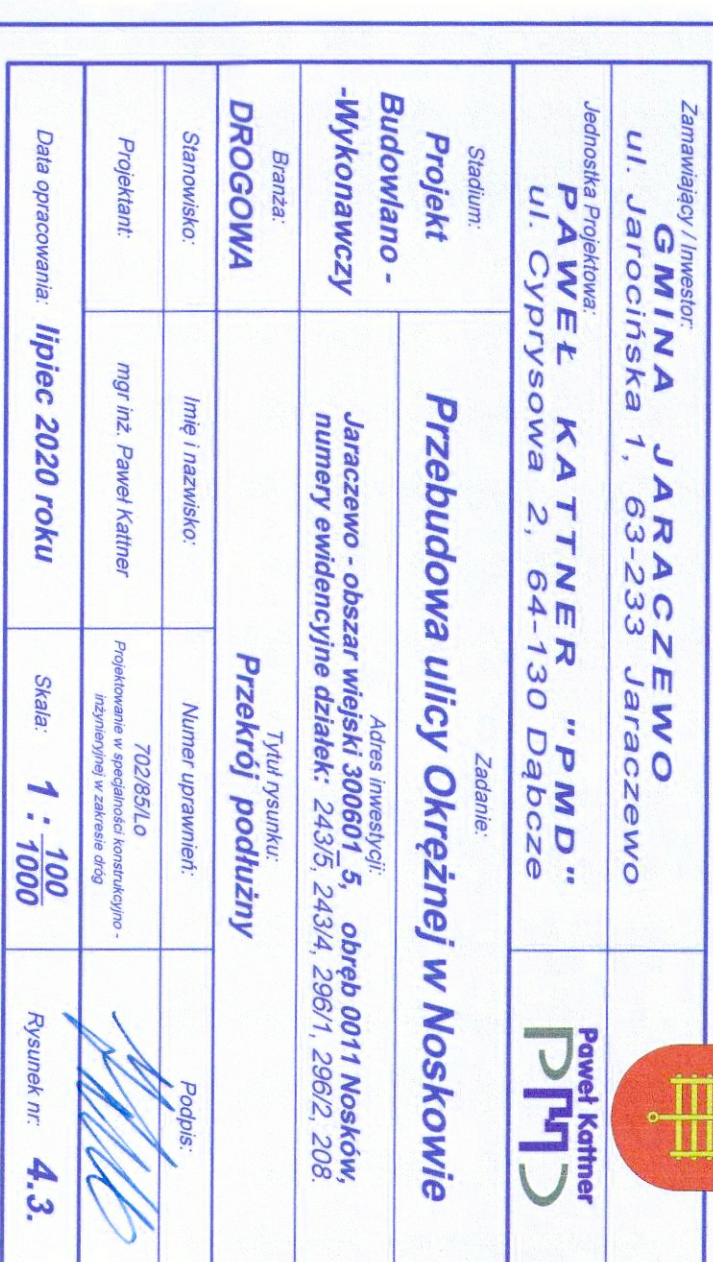 Zamawiający / Inwestor:
GMINA JARACZEWO
ul. Jarocińska 1, 63-233 Jaraczewo
Jednostka Projektowa:
PAWEŁ KATTNER "PMD"
ul. Cyprysowa 2, 64-130 Dąbcze
Paweł Kattner
PMD
Stadium:
Projekt
Budowlano -
-Wykonawczy
Zadanie:
Przebudowa ulicy Okrężnej w Noskowie
Adres inwestycji:
Jaraczewo - obszar wiejski 300601_5, obręb 0011 Nosków,
numery ewidencyjne działek: 243/5, 243/4, 296/1, 296/2, 208.
Branża:
DROGOWA
Tytuł rysunku:
Przekrój podłużny
Stanowisko:
Imię i nazwisko:
Numer uprawnień:
Podpis:
Projektant:
mgr inż. Paweł Kattner
702/85/Lo
Projektowanie w specjalności konstrukcyjno -
inżynieryjnej w zakresie dróg
Data opracowania: lipiec 2020 roku
Skala: 1 : 100
1000
Rysunek nr: 4.3.